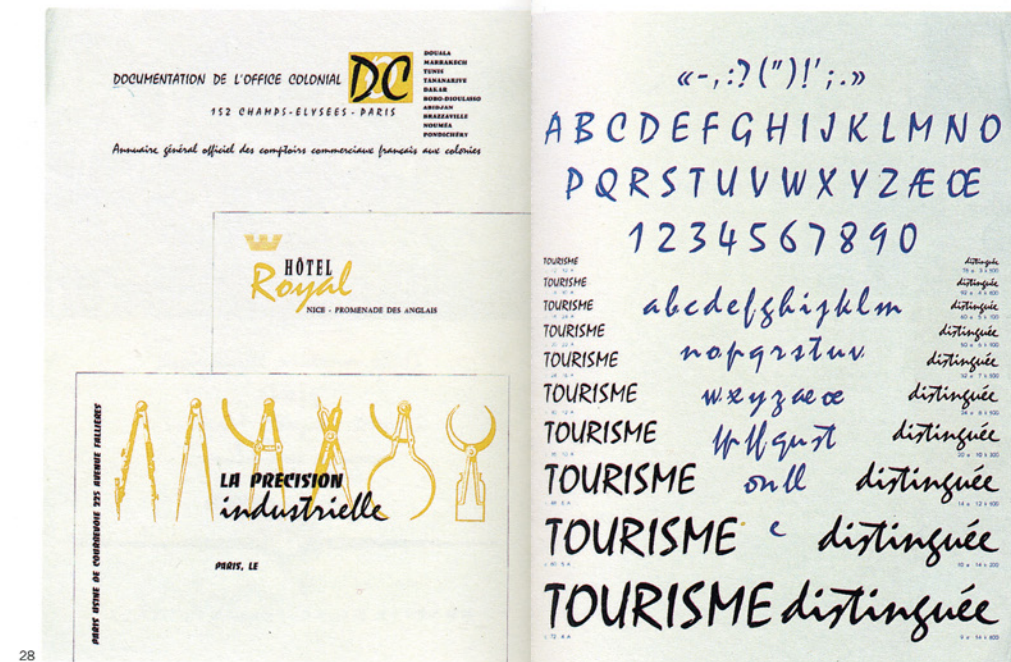 DOCUMENTATION DE L'OFFICE COLONIAL
DC
DOUALA
MARRAKECH
TUNIS
TANANARIVE
DAKAR
BOBO-DIOULASSO
ABIDJAN
BRAZZAVILLE
NOUMÉA
PONDICHÉRY
152 CHAMPS-ELYSEES - PARIS
Annuaire général officiel des comptoirs commerciaux français aux colonies
HÔTEL
Royal
NICE - PROMENADE DES ANGLAIS
PARIS USINE DE COURBEVOIE 225 AVENUE FALLIÈRES
LA PRECISION
industrielle
PARIS, LE
28
«-,:?(")!';.»
ABCDEFGHIJKLMNO
PQRSTUVWXYZÆŒ
1234567890
abcdefghijklm
nopqrstuv
wxyzæœ
on ll
e
TOURISME
TOURISME
TOURISME
TOURISME
TOURISME
TOURISME
TOURISME
TOURISME
TOURISME
TOURISME
distinguée
distinguée
distinguée
distinguée
distinguée
distinguée
distinguée
distinguée
distinguée
distinguée